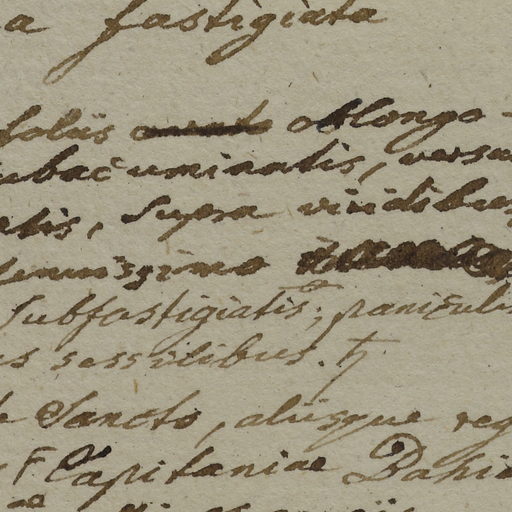 a fastigiata
foliis oblongo-
subacuminatis, versu
atis, supra viridibus
tenuissimo
subfastigiatis, paniculis
us sessilibus. ђ
Sancto, aliisque reg
F Capitaniae Bahie